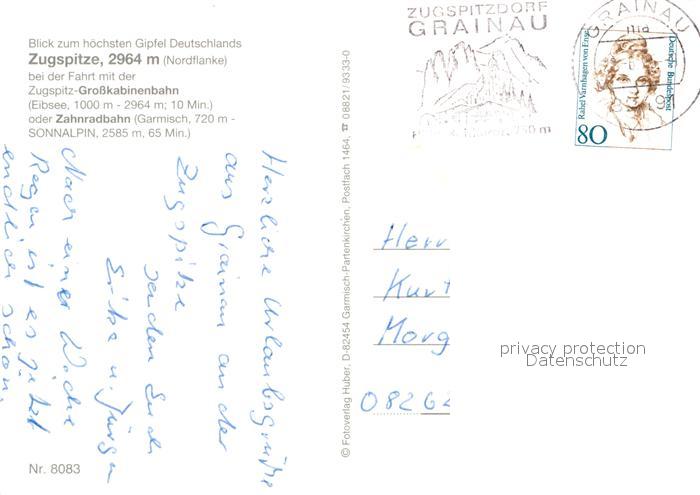 Blick zum höchsten Gipfel Deutschlands
Zugspitze, 2964 m (Nordflanke)
bei der Fahrt mit der
Zugspitz-Großkabinenbahn
(Eibsee, 1000 m - 2964 m; 10 Min.)
oder Zahnradbahn (Garmisch, 720 m -
SONNALPIN, 2585 m, 65 Min.)
Herzliche Urlaubsgrüße
aus Grainau an der
Zugspitze
senden Euch
Erika u. Jürgen
Nach einer Woche
Regen ist es jetzt
endlich schön.
Nr. 8083
© Fotoverlag Huber, D-82454 Garmisch-Partenkirchen, Postfach 1464, ☎ 0 88 21 / 9333-0
ZUGSPITZDORF
GRAINAU
750 m
GRAINAU
Rahel Varnhagen von Ense
Deutsche Bundespost
80
Herr
Kurt
Morg
08262
privacy protection
Datenschutz